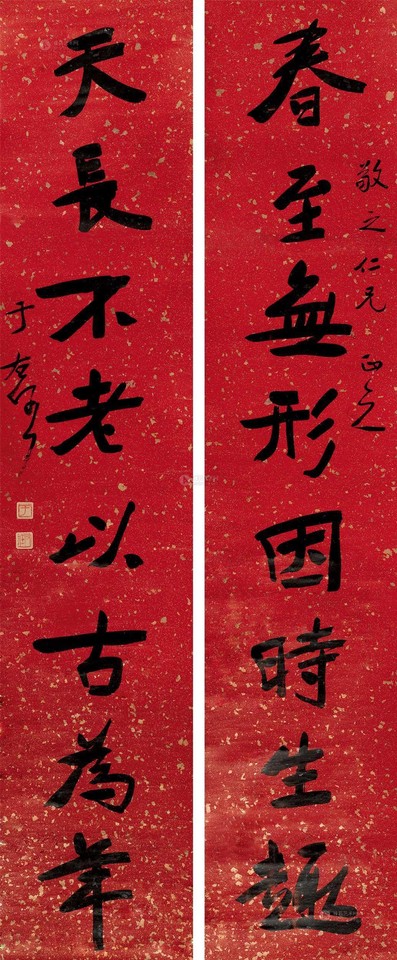 敬之仁兄正之
春至無形因時生趣
天長不老以古為年
于右任